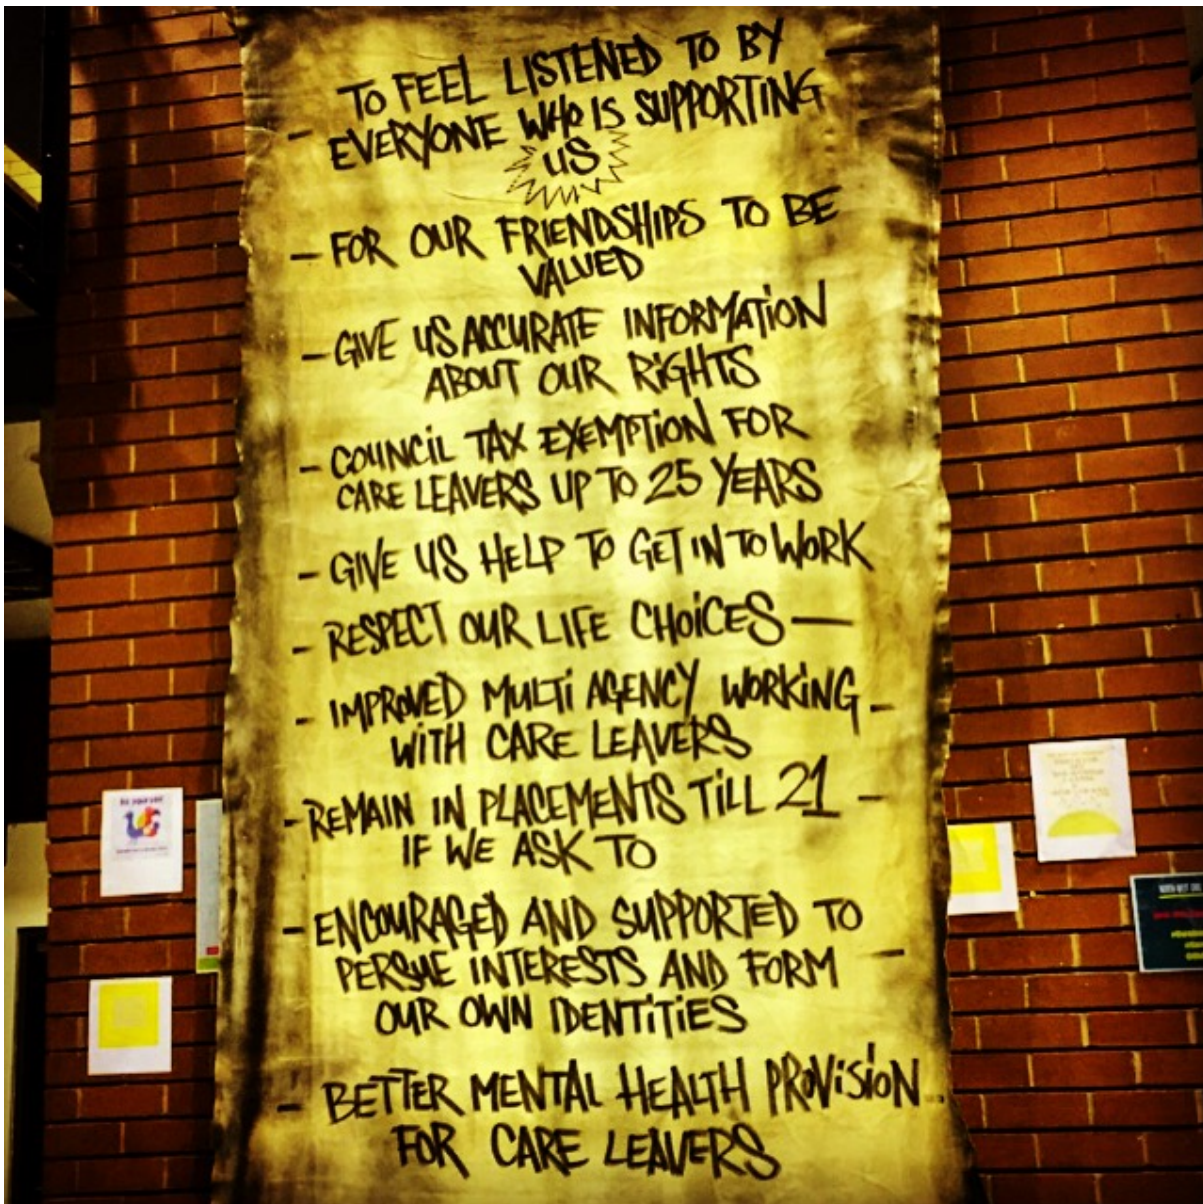 TO FEEL LISTENED TO BY
- EVERYONE WHO IS SUPPORTING
US
- FOR OUR FRIENDSHIPS TO BE
VALUED
- GIVE US ACCURATE INFORMATION
ABOUT OUR RIGHTS
- COUNCIL TAX EXEMPTION FOR
CARE LEAVERS UP TO 25 YEARS
- GIVE US HELP TO GET IN TO WORK
- RESPECT OUR LIFE CHOICES —
- IMPROVED MULTI AGENCY WORKING -
WITH CARE LEAVERS
- REMAIN IN PLACEMENTS TILL 21 -
IF WE ASK TO
- ENCOURAGED AND SUPPORTED TO
PERSUE INTERESTS AND FORM -
OUR OWN IDENTITIES
- BETTER MENTAL HEALTH PROVISION
FOR CARE LEAVERS